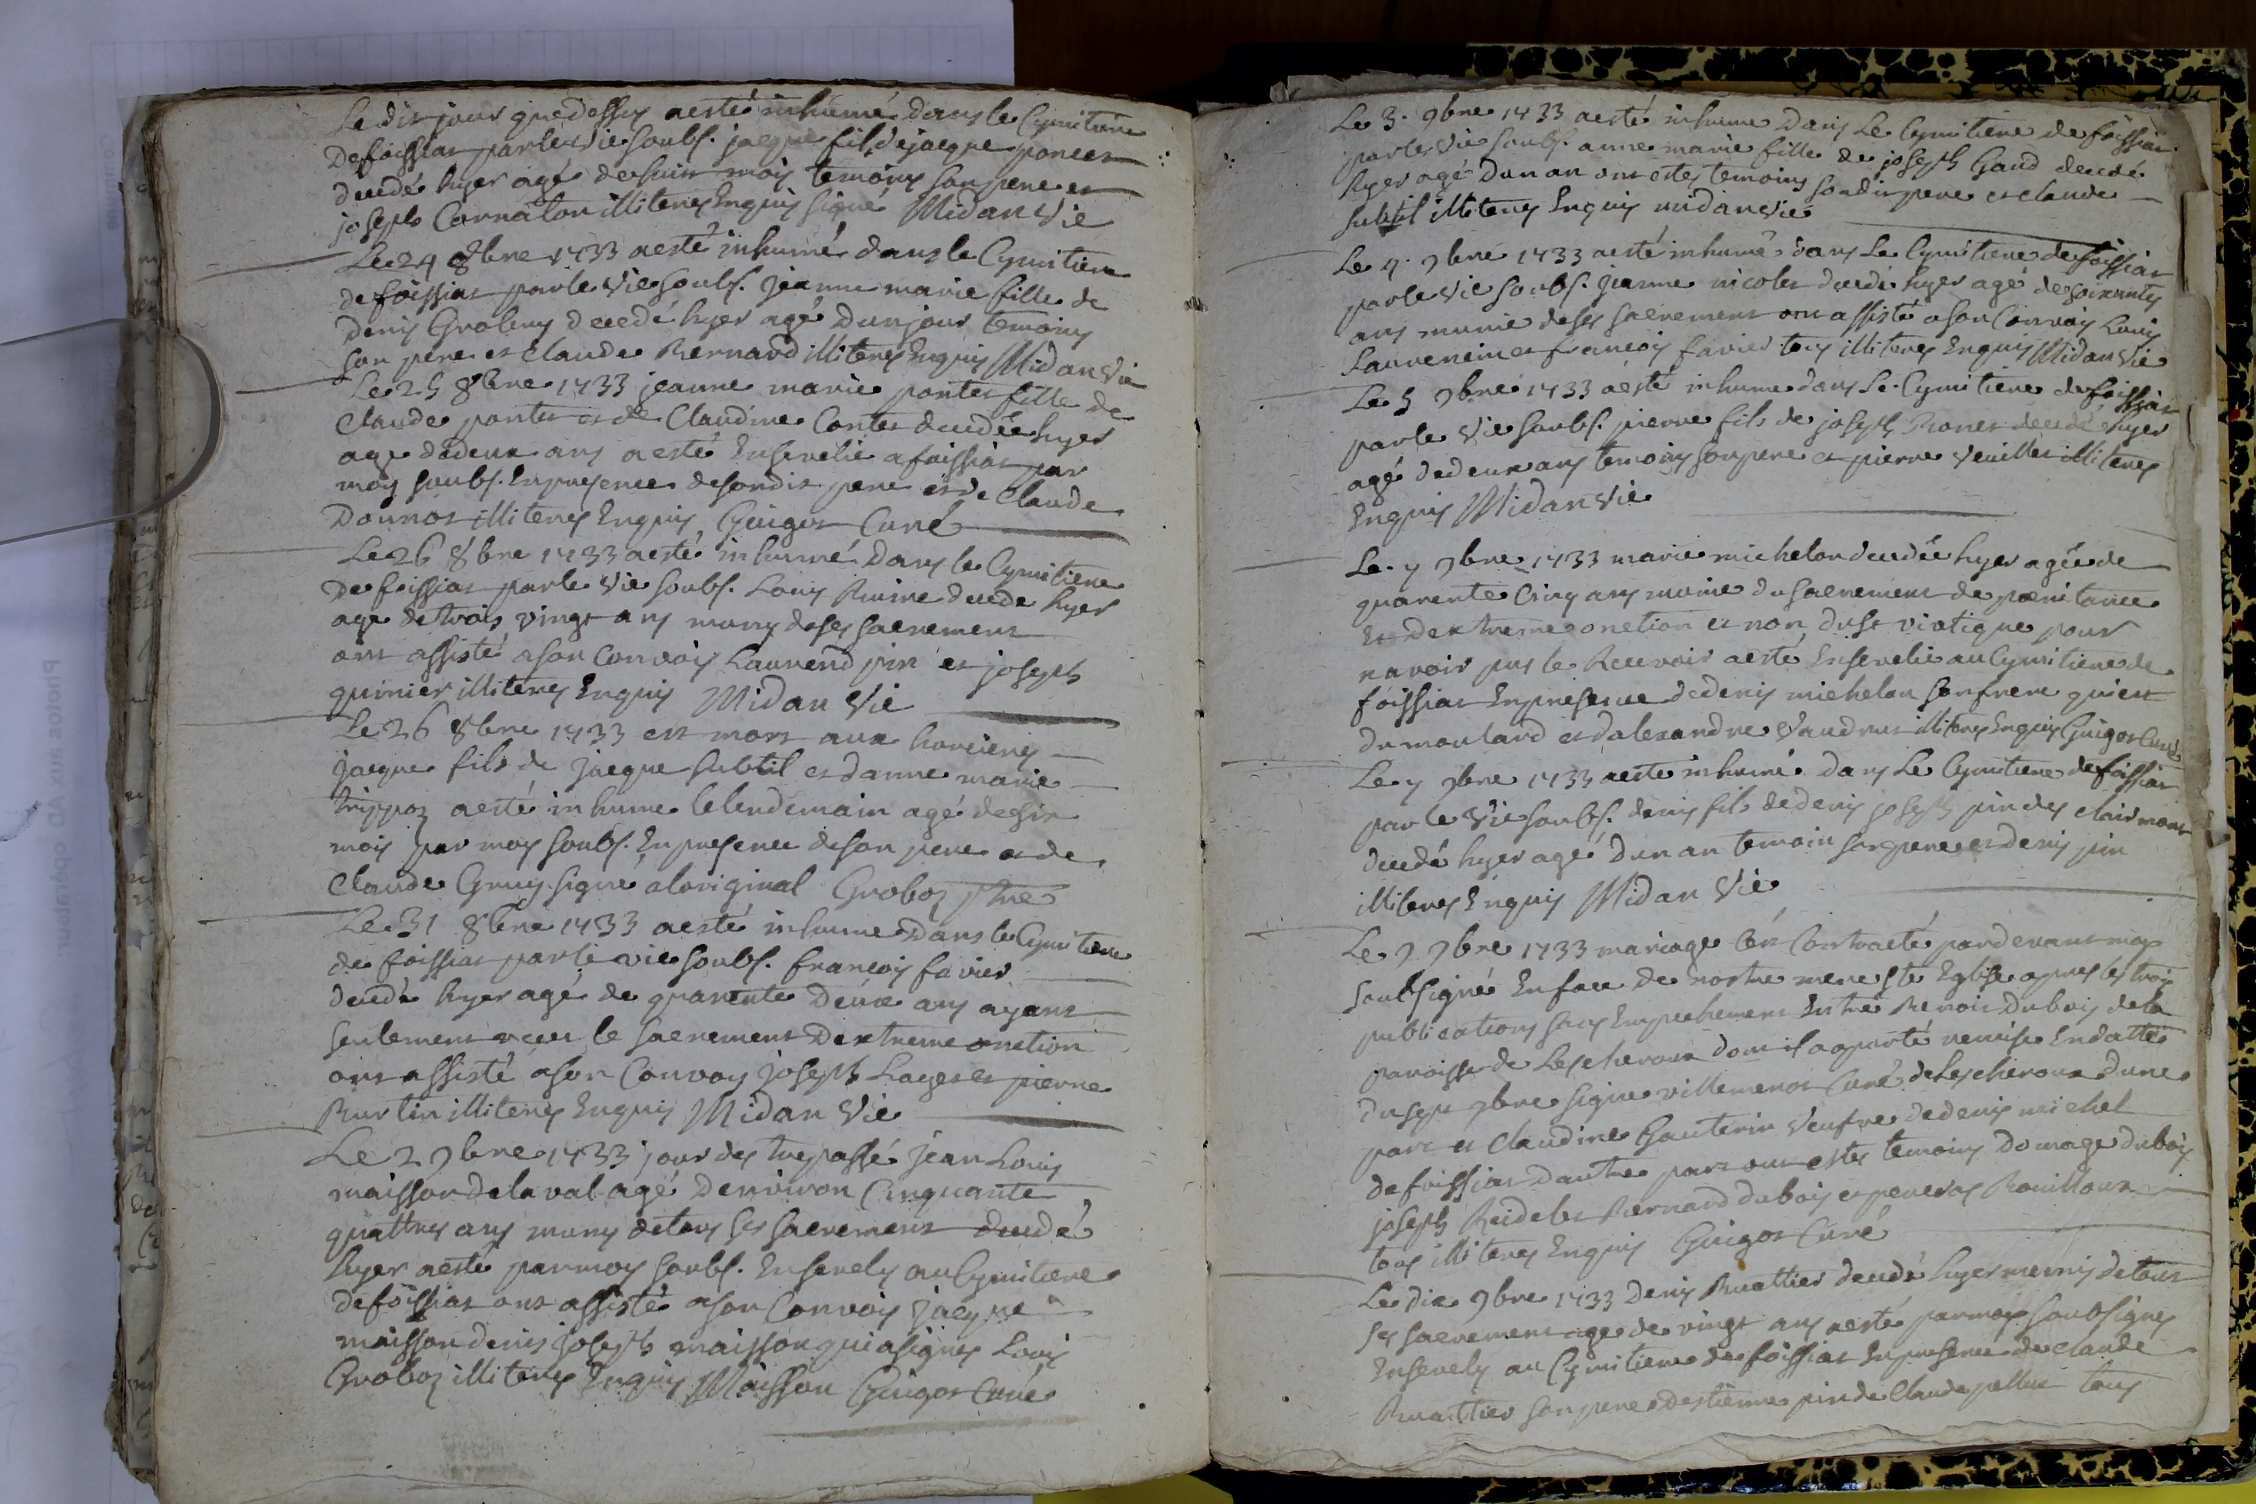 Le dit jour que dessus a esté inhumé dans le Cymitiere
de foissiat par le vie soubs. jacque fils de jacque poncet
decedé hyer agé de huit mois temoins son pere et
joseph Carnalon illiterés Enquis signé Midan vie
Le 24 8bre 1733 a esté inhumé dans le Cymitiere
de foissiat par le vie soubs. jeanne marie fille de
denis Grobuy decedé hyer agé d'un jour temoins
son pere et claude Bernard illiterés Enquis Midan vie
Le 25 8bre 1733 jeanne marie pontet fille de
Claude pontet et de Claudine Contet decedée hyer
age de deux ans a esté Ensevelie a foissiat par
moy soubs. En presence de sondit pere et de Claude
Donnot illiterés Enquis Guigot Curé
Le 26 8bre 1733 a esté inhumé dans le Cymitiere
de foissiat par le vie soubs. Louis decedé hyer
age de trois vingt ans muny de ses sacrement
ont assisté a son Convois Laurend pin et joseph
quinier illiterés Enquis Midan vie
Le 26 8bre 1733 est mort aux
jacque fils de jacque subtil et d'anne marie
trippoz a esté inhume le lendemain agé de six
mois par moy soubs. En presence de son pere et de
Claude Gruy signé a loriginal Groboz ptre
Le 31 8bre 1733 a esté inhume dans le Cymitiere
de foissiat par le vie soubs. francois favier
decedé hyer agé de quarente deux ans ayant
seulement receu le sacrement d'extreme onction
ont assisté a son Convoy joseph Lager et pierre
Burtin illiterés Enquis Midan vie
Le 2 9bre 1733 jour des trepassé jean Louis
maisson de la val agé d'environ Cinquante
quattres ans muny de tous ses sacrement decedé
hyer a esté par moy soubs. Ensevely au Cymitiere
de foissiat ont assisté a son Convois jacque
maisson denis joseph maisson qui a signes Louis
Groboz illiterés Enquis Maisson Guigot Curé
Le 3. 9bre 1733 a esté inhume dans Le Cymitiere de foissiat
par le vie soubs. anne marie fille de joseph Gaud decedé
hyer agé d'un an ont estes temoins sondit pere et claude
subtil illiterés Enquis midan vie
Le 4. 9bre 1733 a esté inhumé dans Le Cymitiere de foissiat
par le vie soubs. jeanne nicolet decedé hyer agé de soixante
ans munie de ses sacrement ont assisté a son Convois Louis
Laurencin et francois favier tous illiterés Enquis Midan vie
Le 5 9bre 1733 a esté inhume dans Le Cymitiere de foissiat
par le vie soubs. pierre fils de joseph decedé hyer
agé de deux ans temoins son pere et pierre veuillet illiterés
Enquis Midan vie
Le 7 9bre 1733 marie michelon decedée hyer agée de
quarente Cinq ans munie du sacrement de poenitance
Et d'extreme onction et non du St viatique pour
navoir pus le Recevoir a esté Ensevelie au Cymitiere de
foissiat En presence de denis michelon son frere qui est
du moulard et d'alexandre vaudrus illiterés Enquis Guigot Curé
Le 7 9bre 1733 a esté inhumé dans Le Cymitiere de foissiat
par le vie soubs. denis fils de denis joseph pin des clairmont
decedé hyer agé d'un an temoin son pere et denis pin
illiterés Enquis Midan vie
Le 9 9bre 1733 mariage Cest Contracté par devant moy
soubsigné En face de nostre mere Ste Eglise apres les trois
publications sans Empechement Entre Benoit Dubois de la
paroisse de Lescheroux dont il a aporté remise En datte
du sept 9bre signe villemenot Curé de Lescheroux d'une
part et Claudine Gauterin veufve de denis michel
de foissiat dautre part ont estes temoins Domage dubois
joseph Reidelet Bernard dubois et Rouilloux
tous illiterés Enquis Guigot Curé
Le dix 9bre 1733 denis Buattier decedé hyer munis de tout
ses sacrement age de vingt ans a esté par moy soubsignes
Ensevely au Cymitiere de foissiat En presence de claude
Buattier son pere d'estienne pin de Claude tous